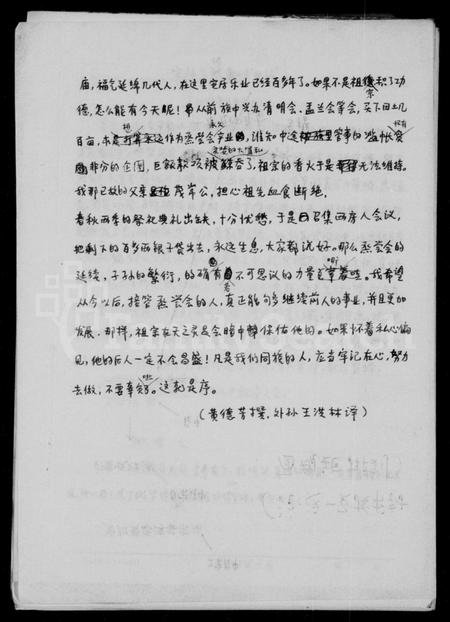 庙，福气延绵几代人，在这里安居乐业已经百多年了。如果不是祖宗积了功
德，怎么能有今天呢！从前族中兴办清明会、盂兰会等会，买下田土几
百亩，想永远作为蒸尝会产业，谁知中途管事的滥帐
非分的企图，巨额款项被吞了，祖宗的香火于是无法维持。
我那已故的父亲茂岸公，担心祖先血食断绝，
春秋两季的祭祀典礼出缺，十分忧愁，于是召集两房人会议，
把剩下的百多两银子贷出去，永远生息，大家都说好。那么蒸尝会的
延续，子孙的繁衍，的确有不可思议的力量。我希望
从今以后，接管蒸尝会的人，真正能够多继续前人的事业，并且更加
发展，那样，祖宗在天之灵是会暗中保佑他的。如果怀着私心偏
见，他的后人一定不会昌盛！凡是我们同族的人，应当牢记在心，努力
去做，不要辜负。这就是序。
（黄德芳撰，外孙王洪林译）